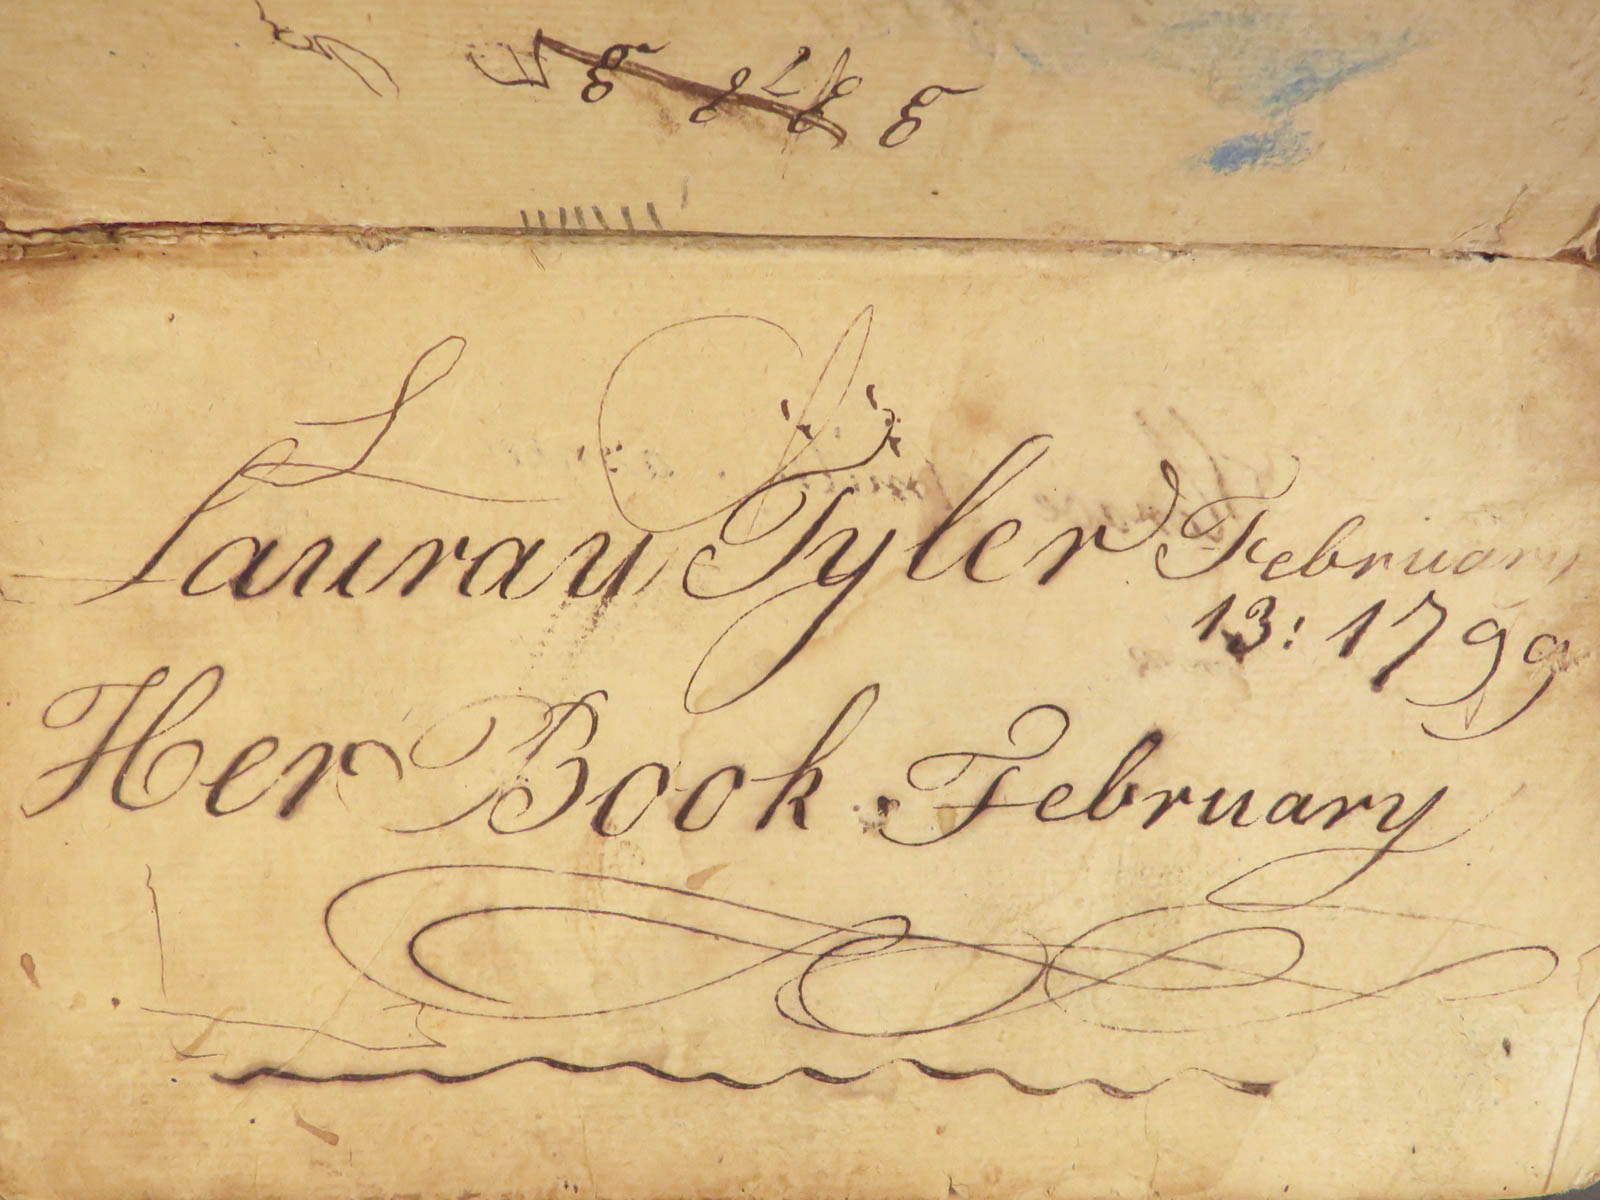 L
Laurau Tyler February
13: 1799
Her Book February